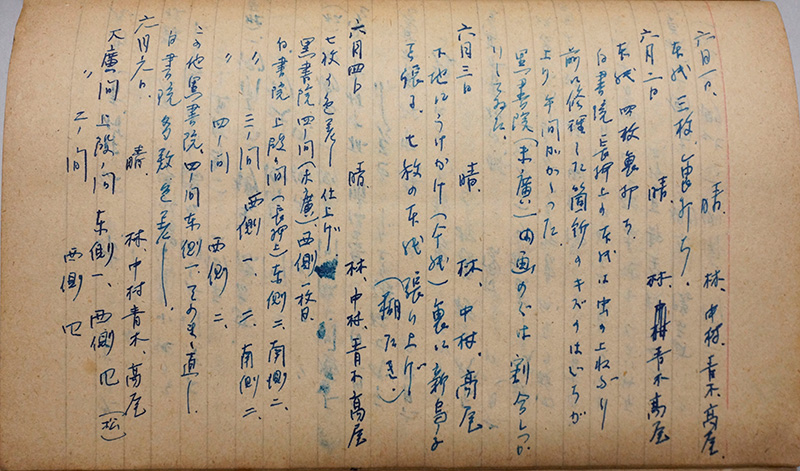 六月一日、 晴、 林、中村、青木、高尾、
本紙 三枚、裏打ち、
六月二日 晴 林、中村 青木 高尾
本紙 四枚裏打ち、
白書院 長押上の本紙は虫の上ねぶり
前に修理した箇所のキズのはいろが
上り 手間がかゝった、
黒書院(末廣)の画のぐは 割合しっか
りしてゐた、
六月三日 晴、 林、中村、高尾、
下地にうけかけ(今越)裏に新鳥子
を張る、七枚の本紙張り上げ、
(糊たき)
六月四日 晴、 林 中村、青木 高尾
七枚の色差し仕上げ、
黒書院 四ノ間(末廣)西側 一枚目、
白書院 上段ノ間(長押上)東側 二、南側 二、
〃 三ノ間 西側 一、二、南側 二、
〃 四ノ間 西側 二、
この他黒書院、四ノ間 東側 一、そのまゝ直し
白書院 多数色差し、
六月六日、 晴、 林、中村 青木、高尾
大廣間 上段ノ間 東側 一、西側 四(松)
〃 二ノ間 西側 四